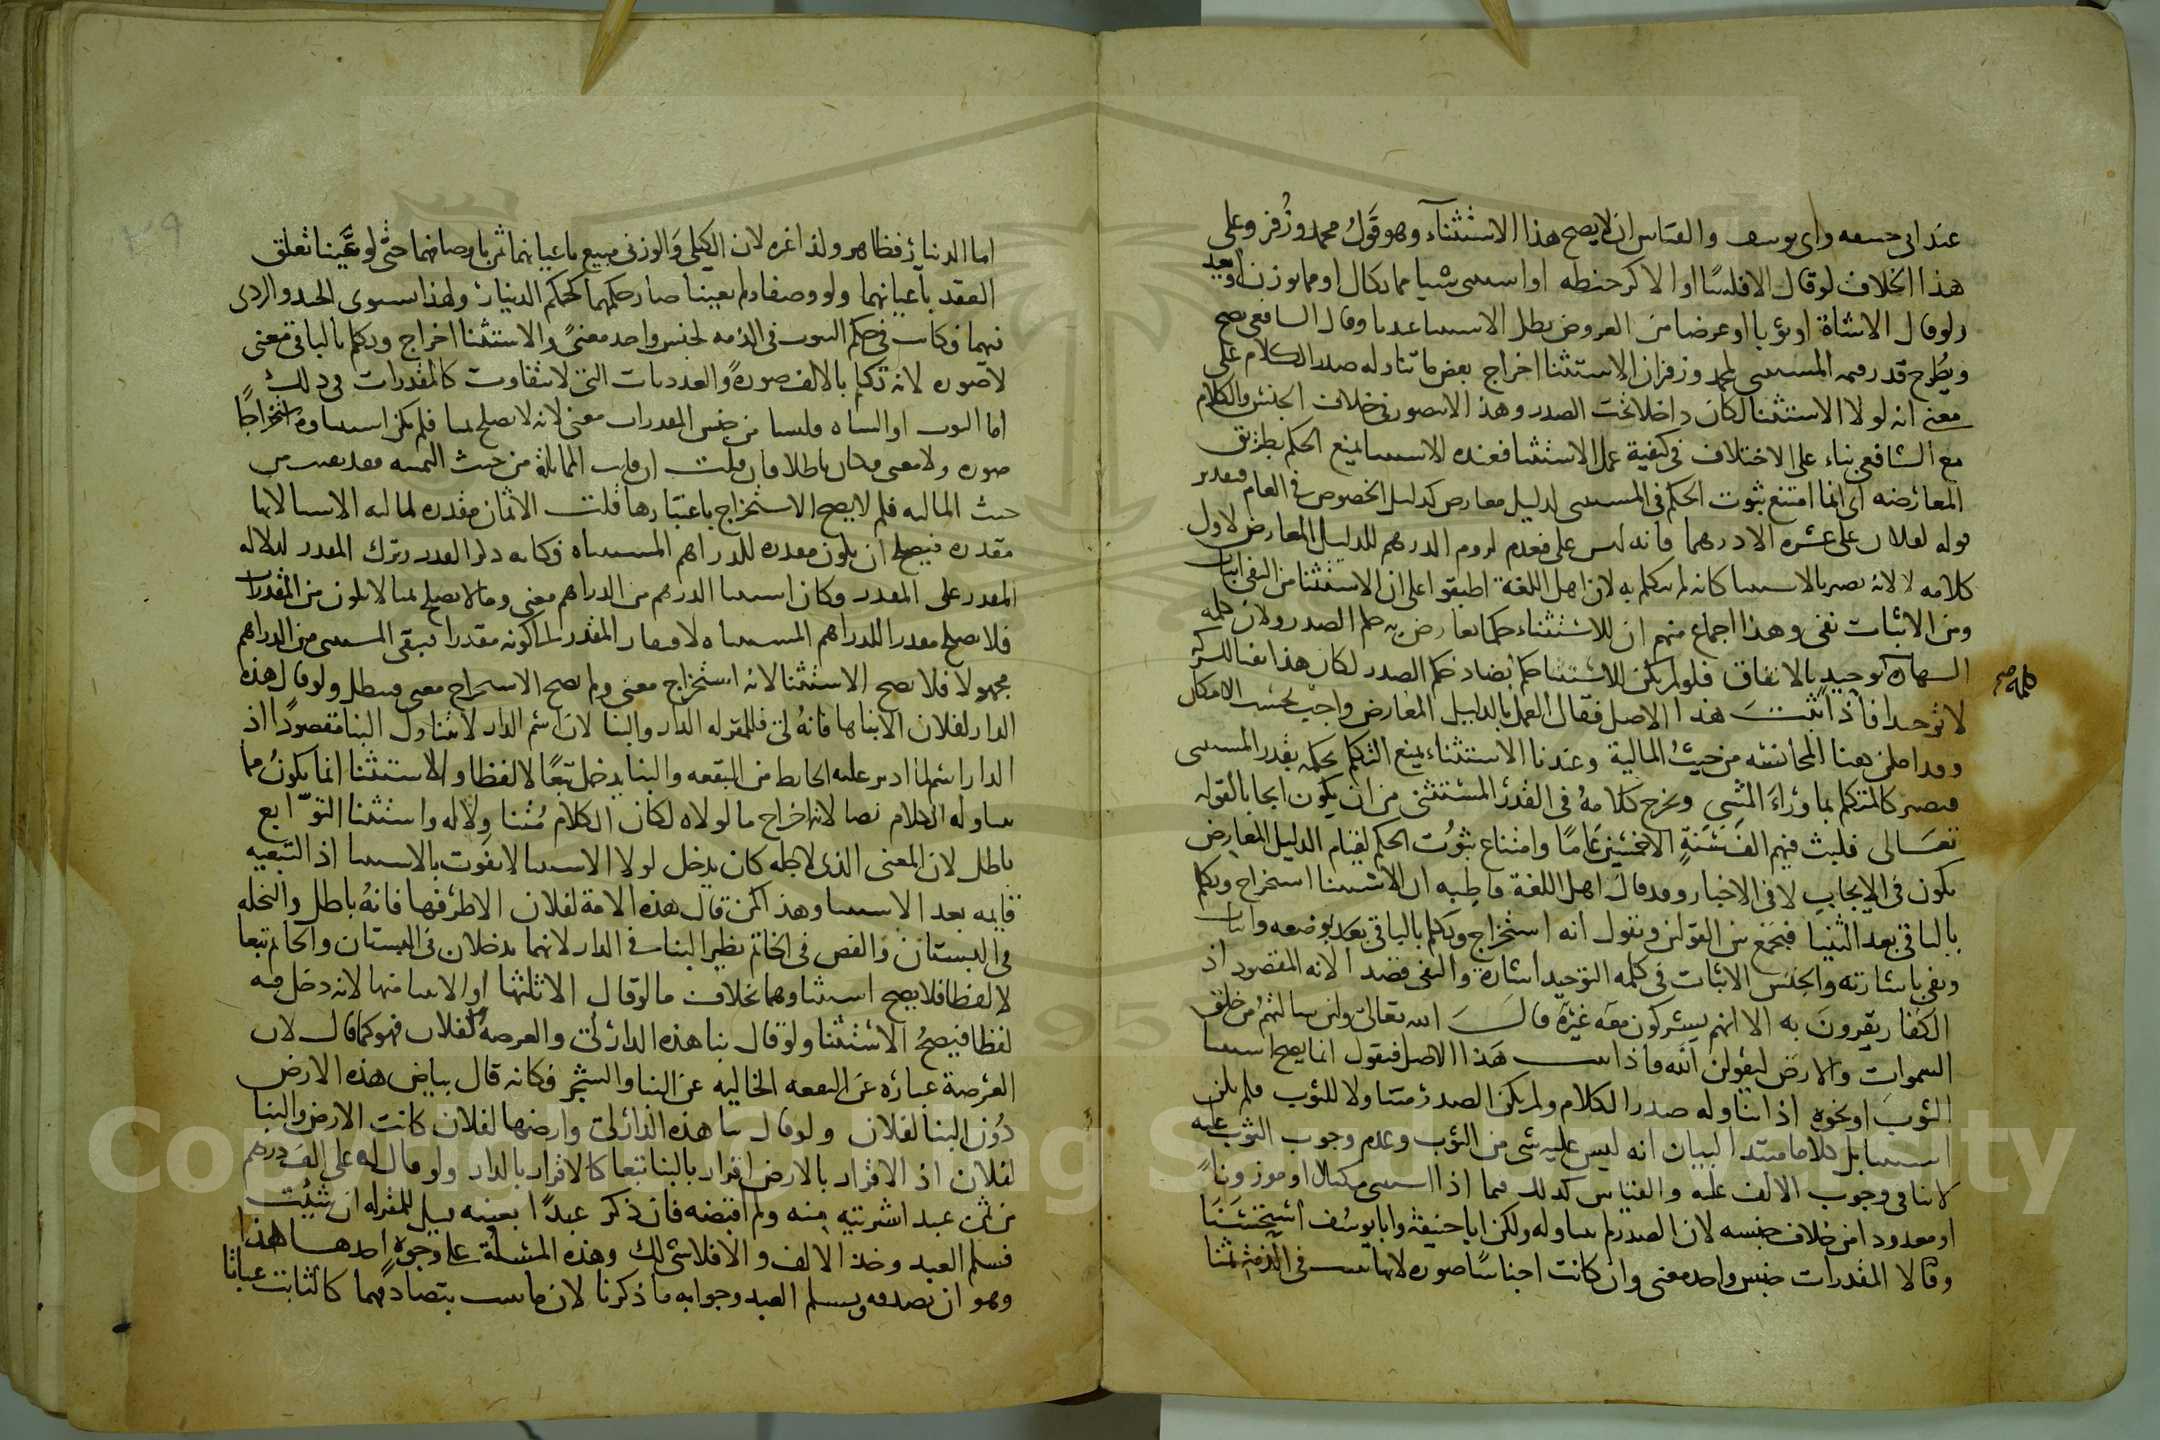 عند ابي حنيفه وابي يوسف والقياس ان لا يصح هذا الاستثناء وهو قول محمد وزفر وعلى
هذا الخلاف لو قال الا فلسًا او الا كر حنطه او استثنى شيا مما يكال او مما يوزن او يعد
ولو قال الا شاة او ثوبا او عرضا من العروض بطل الاستثنا عندنا وقال الشافعي يصح
ويطرح قدر قيمه المستثنى لمحمد وزفر ان الاستثنا اخراج بعض ما تناوله صدر الكلام على
معنى انه لولا الاستثنا لكان داخلا تحت الصدر وهذا لا يتصور في خلاف الجنس والكلام
مع الشافعي بناء على الاختلاف في كيفية عمل الاستثنا فعنده الاستثنا يمنع الحكم بطريق
المعارضه اى انما امتنع ثبوت الحكم في المستثنى لدليل معارض كدليل الخصوص في العام فتقدير
قوله لفلان على عشره الا درهما فانه ليس على فعدم لزوم الدرهم للدليل المعارض لاول
كلامه لا لانه يصير بالاستثنا كانه لم يتكلم به لان اهل اللغة اطبقوا على ان الاستثنا من النفى اثبات
ومن الاثبات نفى وهذا اجماع منهم ان للاستثناء حكما يعارض به حكم الصدر ولان كلمه
الشهادة توحيد بالاتفاق فلو لم يكن للاستثنا حكم يضاد حكم الصدر لكان هذا نفيا للشركه
كلمة صح
لا توحيدا فاذا ثبت هذا الاصل فقال العمل بالدليل المعارض واجب بحسب الامكان
وقد امكن هنا المجانسه من حيث المالية وعندنا الاستثناء يمنع التكلم بحكمه بقدر المستثنى
فيصير كالمتكلم بما وراء المثنى ويخرج كلامه في القدر المستثنى من ان يكون ايجابا لقوله
تعالى فلبث فيهم الف سنة الا خمسين عاما وامتناع ثبوت الحكم لقيام الدليل المعارض
يكون في الايجاب لا في الاخبار وقد قال اهل اللغة قاطبه ان الاستثنا استخراج وتكلم
بالباقي بعد الثنيا فنجمع بين القولين ونقول انه استخراج وتكلم بالباقي بعد بوضعه واثبات
ونفي باشارته والجنس الاثبات في كلمه التوحيد اشارة والنفى قصدا لانه المقصود اذ
الكفار يقرون به الا انهم يشركون معه غيره قال الله تعالى ولئن سالتهم من خلق
السموات والارض ليقولن الله فاذا ثبت هذا الاصل فيقول انما يصح استثنا
الثوب او نحوه اذا تناوله صدر الكلام ولم يكن الصدر متناولا للثوب فلم يكن
استثنا بل كلاما مبتدا لبيان انه ليس عليه شى من الثوب وعدم وجوب الثوب عليه
لا ينافي وجوب الالف عليه والقياس كذلك فيما اذا استثنى مكيلا او موزونا
او معدودا من خلاف جنسه لان الصدر لم يتناوله ولكن ابا حنيفة وابا يوسف استحسنا
وقالا المقدرات جنس واحد معنى وان كانت اجناسًا صوره لانها تثبت في الذمة ثمنا
اما الدنانير فظاهر وكذا غيره لان الكيلي والوزني مبيع باعيانهما ثمن باوصافهما حتى لو عينا تعلق
العقد باعيانهما ولو وصفا ولم يعينا صار حكمهما كحكم الدينار ولهذا يستوى الجيد والردى
فيهما فكانت في حكم الثبوت في الذمه كجنس واحد معنى والاستثنا اخراج وتكلم بالباقي معنى
لا صوره لانه تكلم بالالف صورة والعدديات التي لا تتفاوت كالمقدرات في ذلك
اما الثوب او الشاه فليسا من جنس المقدرات معنى لانه لا يصلح ثمنا فلم يكن استثناوه استخراجًا
صوره ولا معنى فكان باطلا فان قلت ان فاتت المماثلة من حيث الثمنيه فقد بقيت من
حيث الماليه فلم لا يصح الاستخراج باعتبارها قلت الاثمان مقدره لماليه الاشيا لانها
مقدره فيصلح ان يكون مقدره للدراهم المستثناه فكانه ذكر القدر وترك المقدر لدلاله
المقدر على المقدر وكان استثنا الدرهم من الدراهم معنى وما لا يصلح ثمنا لا يكون من المقدرات
فلا يصلح مقدرا للدراهم المستثناه لافتقار المقدر الى كونه مقدرا فبقي المستثنى من الدراهم
مجهولا فلا يصح الاستثنا لانه استخراج معنى ولم يصح الاستخراج معنى فبطل ولو قال هذه
الدار لفلان الا بناها فانه لي فللمقر له الدار والبنا لان اسم الدار لا يتناول البنا مقصودًا اذ
الدار اسم لما ادير عليه الحايط من البقعه والبنا يدخل تبعًا لا لفظا والاستثنا انما يكون مما
يتناوله الكلام نصا لانه اخراج ما لولاه لكان الكلام مثبتا وكاله واستثنا التوابع
باطل لان المعنى الذى لاجله كان يدخل لولا الاستثنا لا يفوت بالاستثنا اذ التبعيه
قايمه بعد الاستثنا وهذا كمن قال هذه الامة لفلان الا طرفها فانه باطل والنخله
في البستان والفص في الخاتم نظير البنا في الدار لانهما يدخلان في البستان والخاتم تبعا
لا لفظا فلا يصح استثناوهما بخلاف ما لو قال الا ثلثها او الا بيتا منها لانه دخل فيه
لفظا فيصح الاستثنا ولو قال بنا هذه الدار لى والعرصة لفلان فهو كما قال لان
العرصة عباره عن البقعه الخاليه عن البنا والشجر فكانه قال بياض هذه الارض
دون البنا لفلان ولو قال بنا هذه الدار لى وارضها لفلان كانت الارض والبنا
لفلان اذ الاقرار بالارض اقرار بالبنا تبعا كالاقرار بالدار ولو قال له على الف درهم
من ثمن عبد اشتريته منه ولم اقبضه فان ذكر عبدًا بعينه قيل للمقر له ان شيت
فسلم العبد وخذ الالف والا فلا شى لك وهذه المسئلة على وجوه احدها هذا
وهو ان يصدقه ويسلم العبد وجوابه ما ذكرنا لان ما ثبت بتصادقهما كالثابت عيانا